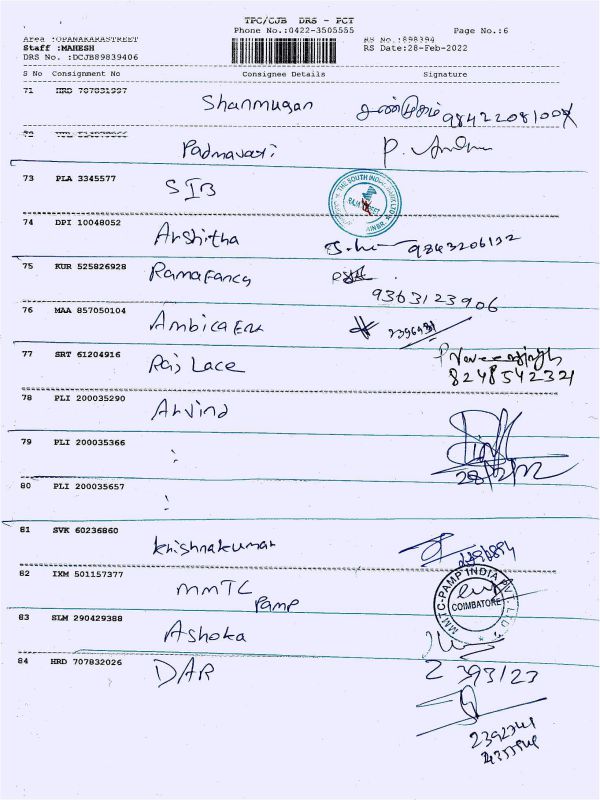 TPC/CJB DRS - PCT
Phone No.:0422-3505555 Page No.:6
Area :OPANAKARASTREET RS No.:898394
Staff :MAHESH RS Date:28-Feb-2022
DRS No. :DCJB89839406
S No Consignment No Consignee Details Signature
71 HRD 707831997
Shanmugan சண்முகம்
72
Padmavati P.
73 PLA 3345577
SIB
THE SOUTH INDIAN BANK LTD
74 DPI 10048052
Arshitha 9843206132
75 KUR 525826928
Ramafancy
9363123906
76 MAA 857050104
Ambica
77 SRT 61204916
Raj Lace
8248542321
78 PLI 200035290
Arvind
79 PLI 200035366
:
80 PLI 200035657
:
81 SVK 60236860
Krishnakumar
82 IXM 501157377
MMTC
Pamp
MMTC-PAMP INDIA PVT. LTD.
COIMBATORE
83 SLM 290429388
Ashoka
84 HRD 707832026
DAR 2393123